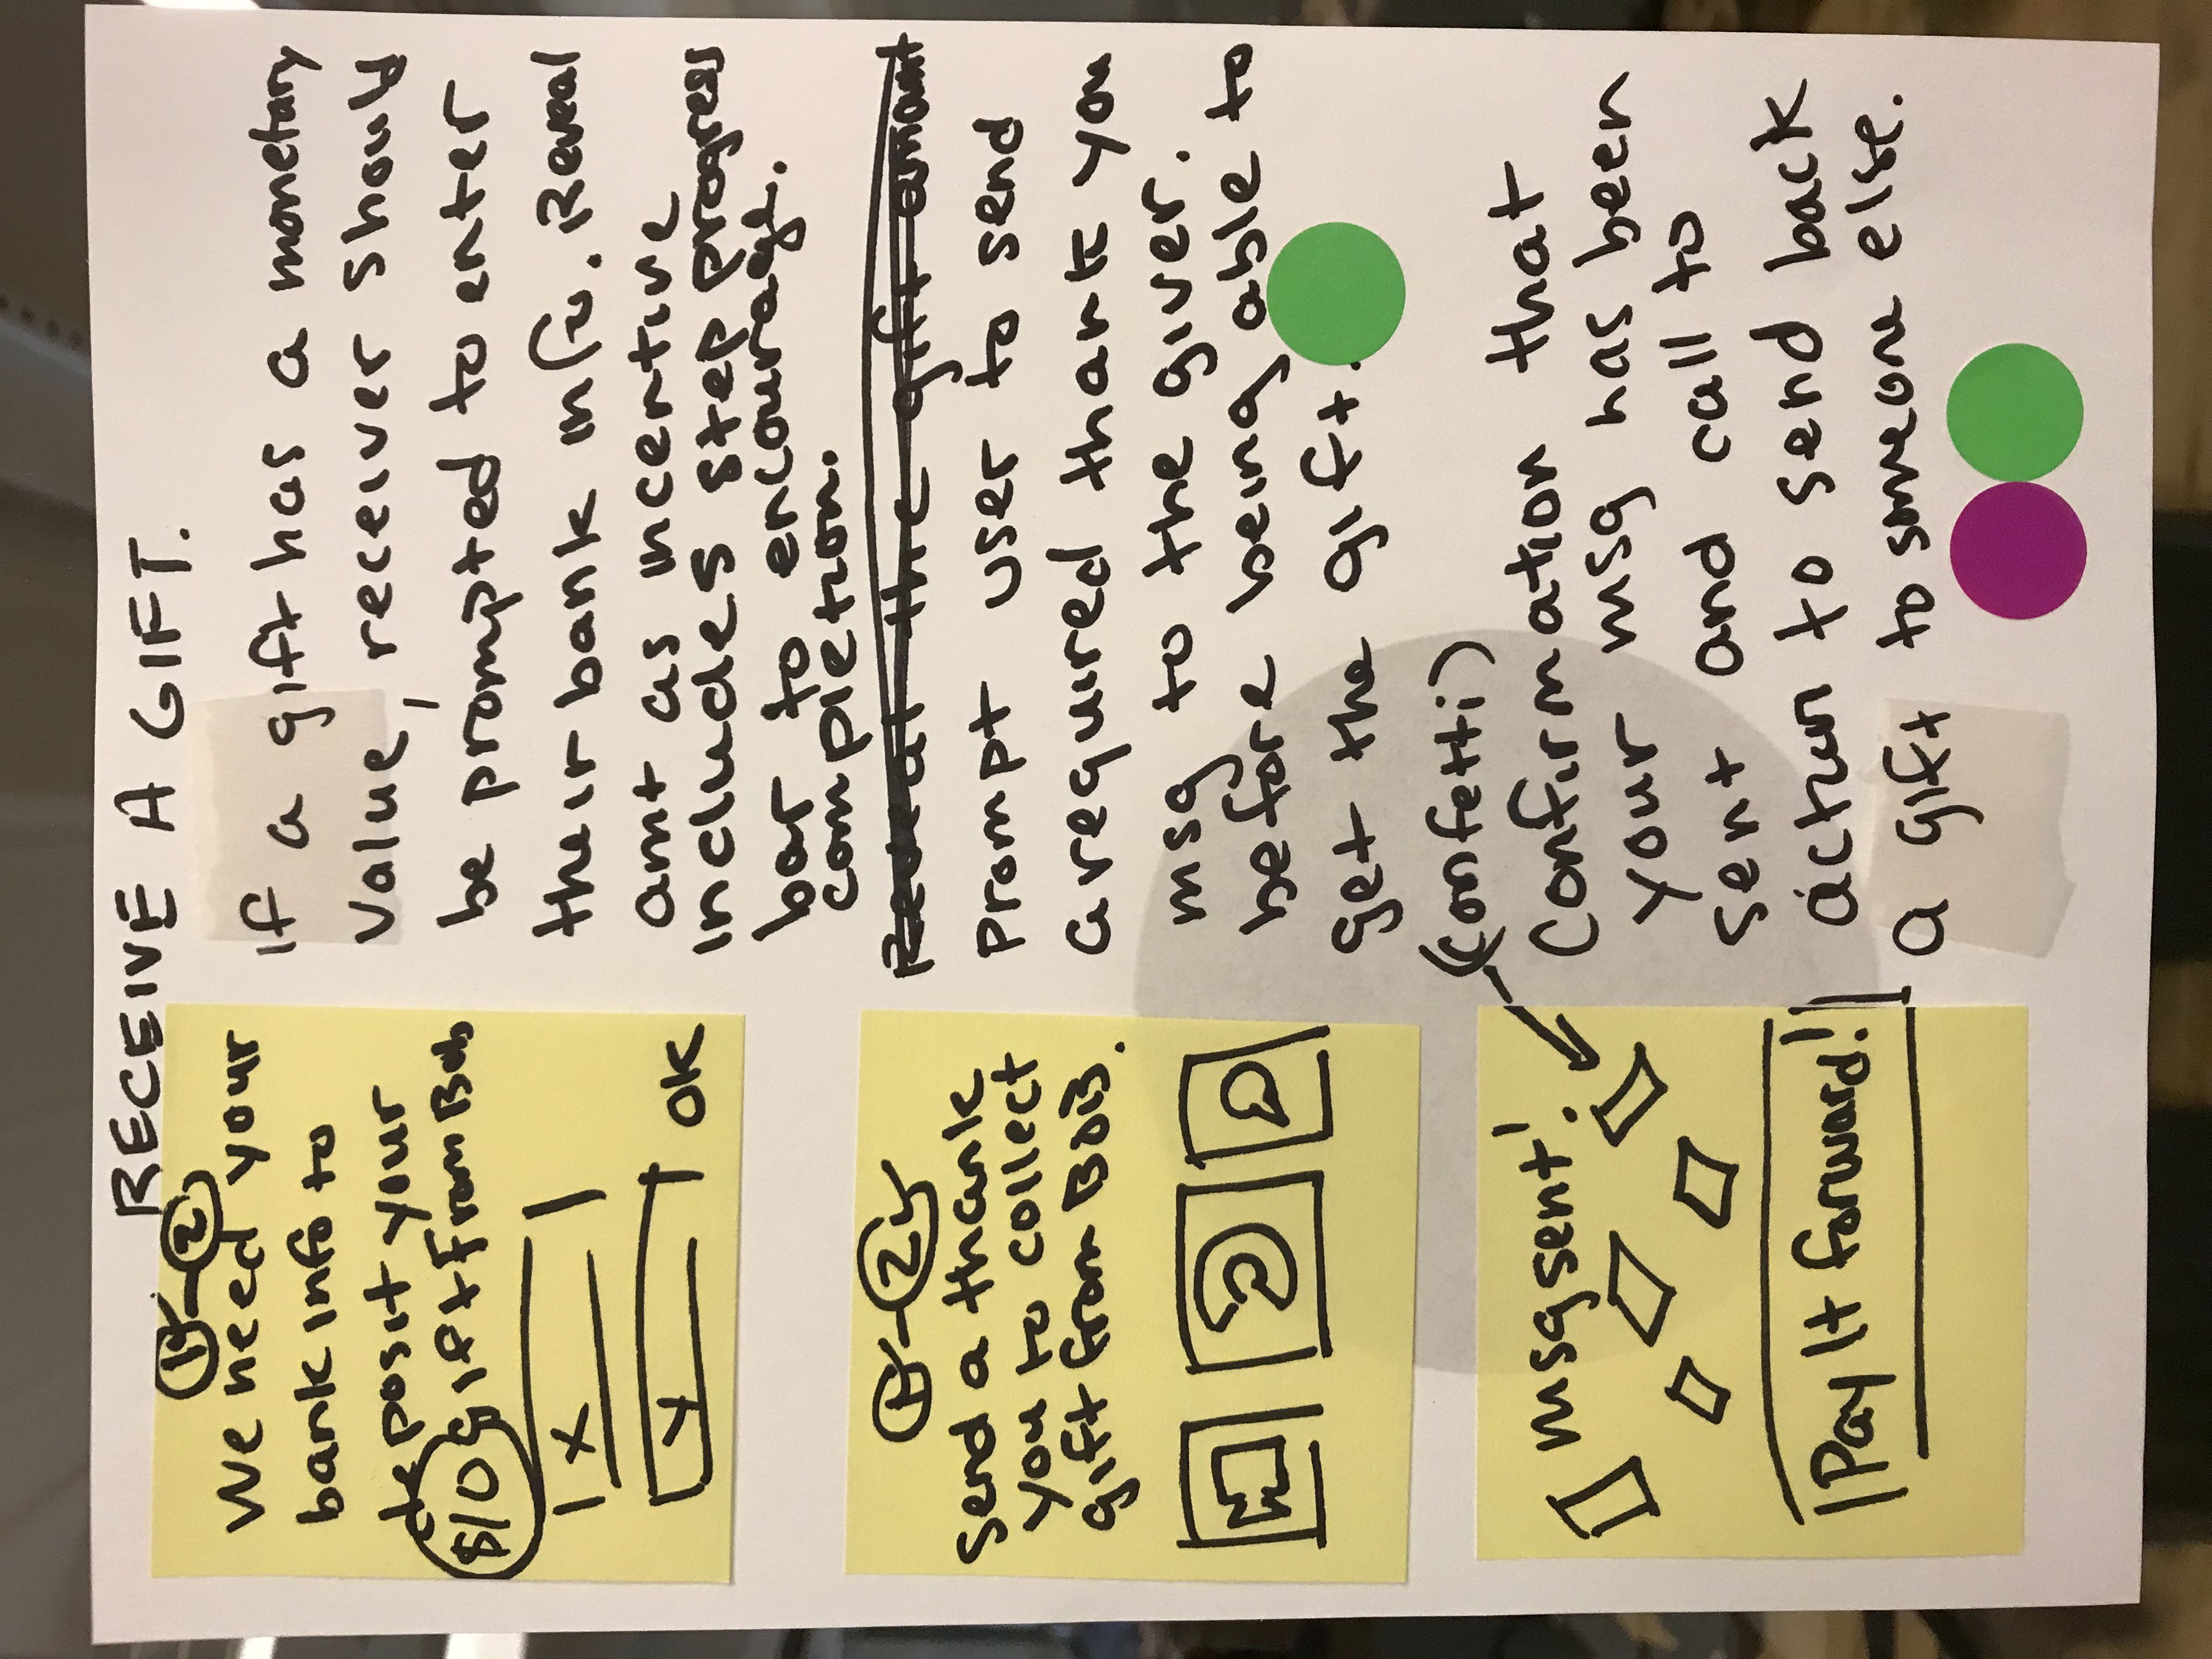 RECEIVE A GIFT.
1 - 2
We need your
bank info to
deposit your
$10 gift from Bob
X
Y OK
If a gift has a monetary
value, receiver should
be prompted to enter
their bank info. Reveal
amt as incentive
includes step progress
bar to encourage.
completion.
Reveal the gift amount
1 - 2
Send a thank
you to collect
gift from BOB.
Prompt user to send
a required thank you
msg to the giver.
before being able to
get the gift.
msg sent!
Pay It forward!
(confetti)
Confirmation that
your msg has been
sent and call to
action to send back
a gift to someone else.